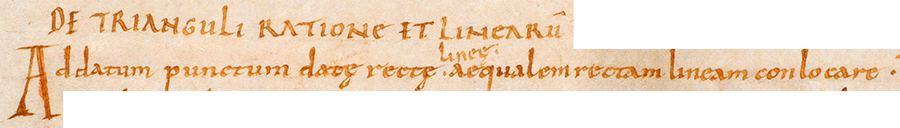 DE TRIANGULI RATIONE ET LINEARŪ
lineę.
Ad datum punctum datę rectę. aequalem rectam lineam conlocare.